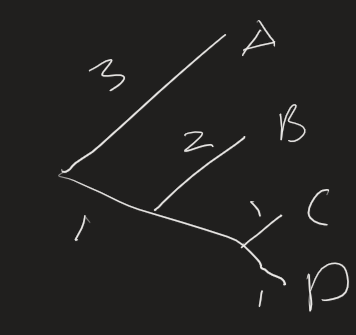 3
A
2
B
1
1
C
1
D